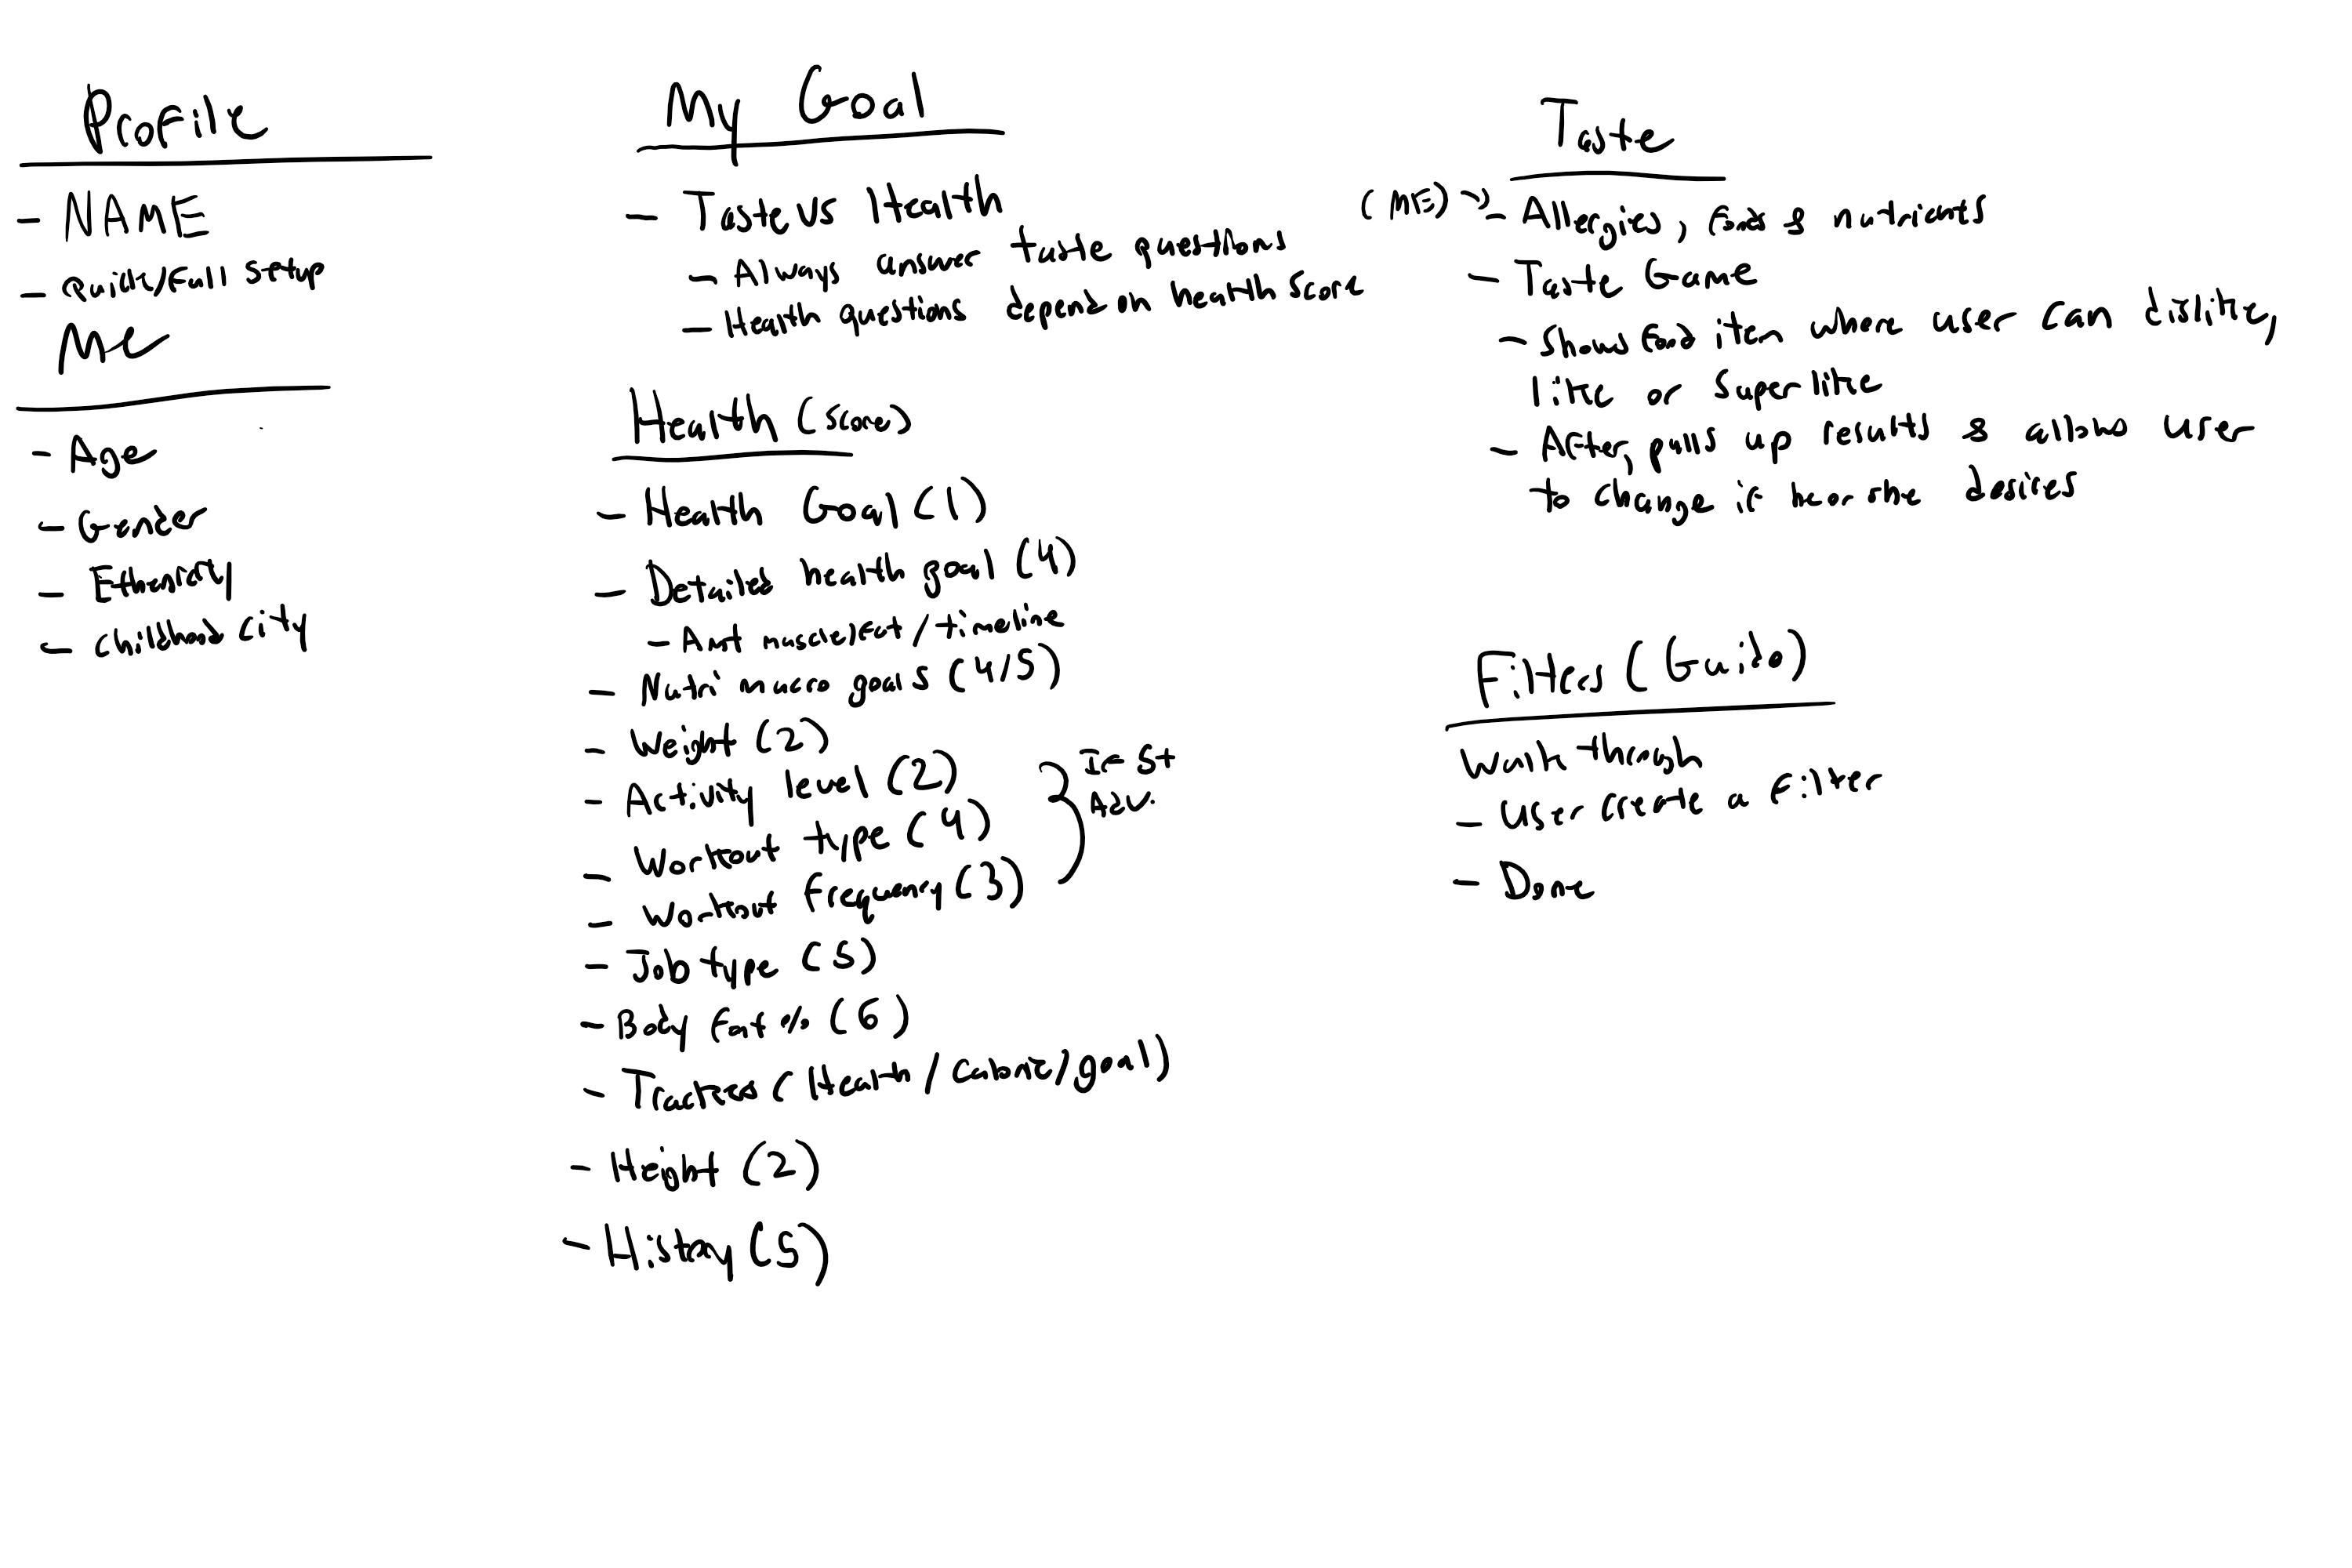 Profile
- NAME
- Quick/Full setup
Me
- Age
- Gender
- Ethnicity
- Childhood city
My Goal
- Taste vs Health
- Always answer taste questions
- Health questions depend on health score
Health (Scores)
- Health Goal (1)
- Detailed health goal (4)
- Amt muscle/fat/timeline
- Nutri macro goals (4/5)
- Weight (2)
- Activity level (2)
- Workout type (4)
- Workout frequency (3)
If 5+
Adv.
- Job type (5)
- Body fat % (6)
- Trackers (Health/Calorie/goal)
- Height (2)
- History (5)
Taste
(ME) → - Allergies, foods & nutrients
- Taste Game
- Shows food item where user can dislike,
like or superlike
- After, pulls up results & allows user
to change if he or she desires
Filters (Guido)
Walk through
- User create a filter
- Done